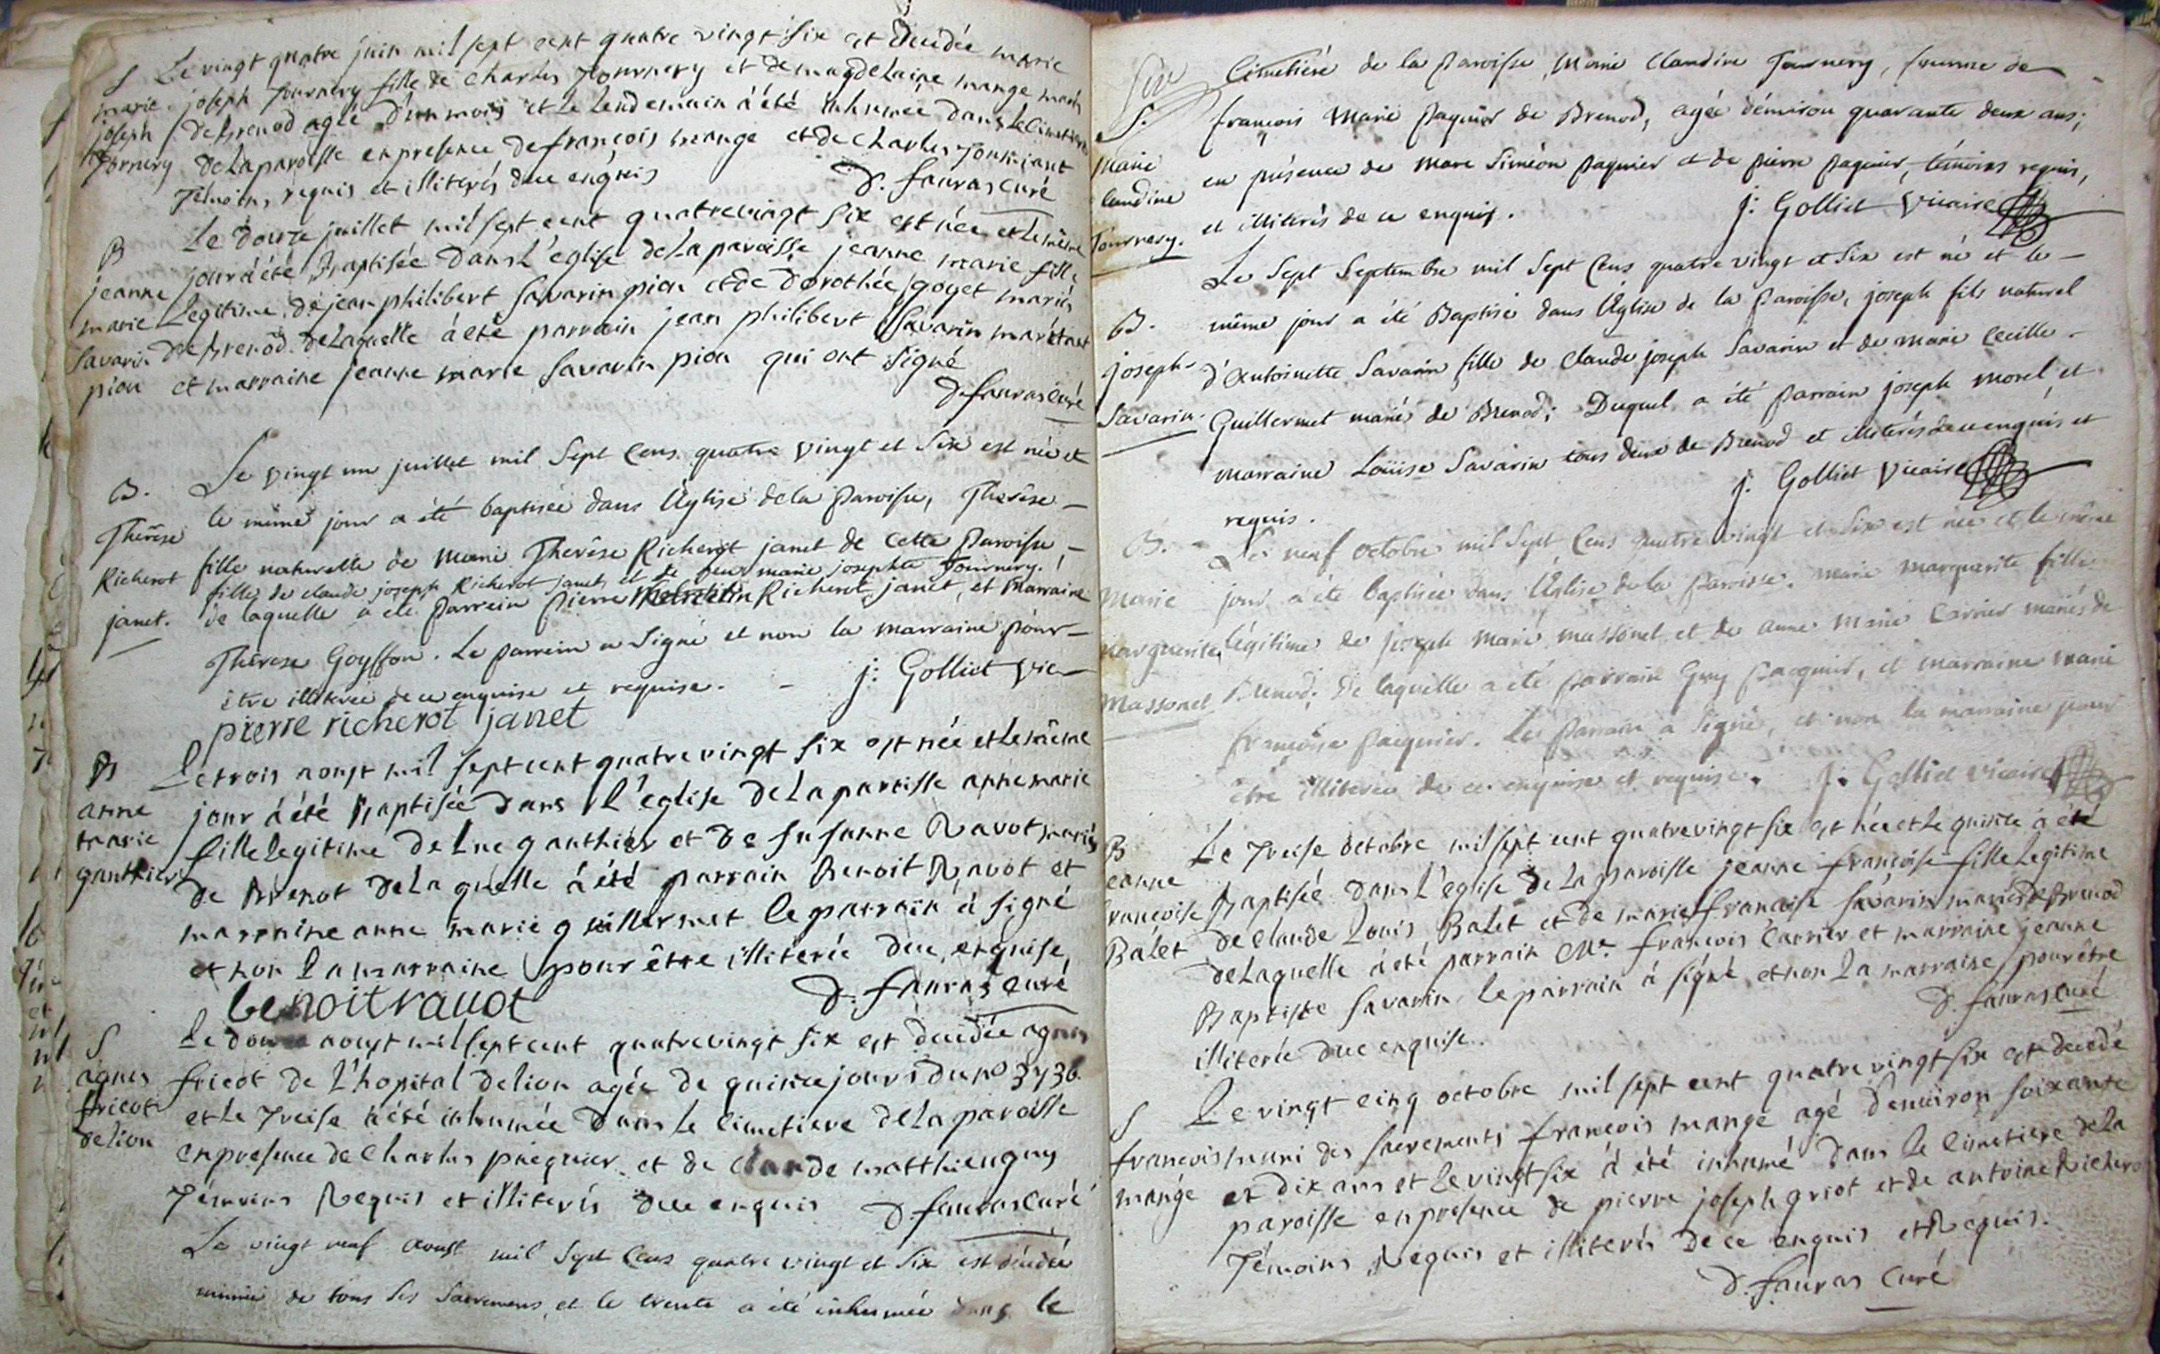 Le vingt quatre juin mil sept cent quatre vingt six est decedée marie
joseph Tournery fille de Charles Tournery et de magdelaine mange mariés
de brenod agée d'un mois et le lendemain a été inhumée dans le cimetiere
de la paroisse en presence de françois mange et de Charles
Témoins requis et illiterés de ce enquis
D. fauras Curé
S
marie
joseph
Tournery
Le douze juillet mil sept cent quatrevingt six est née et le même
jour a été Baptisée dans L'eglise de La paroisse jeanne marie fille
Legitime de jean philibert Savarin pion et de Dorothée goyet mariés
de brenod. de Laquelle a été parrain jean philibert Savarin
et marraine jeanne marie Savarin pion qui ont signé
D. fauras Curé
B
jeanne
marie
Savarin
pion
Le vingt un juillet mil Sept Cens quatre vingt et Six est née et
le même jour a été baptisée dans l'Eglise de la Paroisse, Therêse –
fille naturelle de Marie Therêse Richerot janet de Cette Paroisse, –
fille de claude joseph Richerot janet, et de feue marie josephte Tournery.
de laquelle a été parrein Pierre Richerot janet, et Marraine
Thérese Goyffon. Le parrein a Signé et non la marraine pour –
être illiterée de ce enquise et requise. – j: Golliet Vic
pierre richerot janet
B.
Therêse
Richerot
janet.
Le trois aoust mil sept cent quatre vingt six est née et le même
jour a été Baptisée dans L'eglise de La paroisse anne marie
fille legitime de Luc gauthier et de Susanne Ravot mariés
de Brenot de La quelle a été parrain Benoit Ravot et
marraine anne marie guillermet le parrain a signé
et non La marraine pour être illiterée de ce enquise,
benoit rauot
D. fauras Curé
B
anne
marie
gauthier
Le douze aoust mil sept cent quatrevingt six est decedée agnes
fricot de L'hopital de lion agée de quinze jours du no 3736.
et le Treise a été inhumée dans le cimetiere de La paroisse
en presence de Charles paquier et de claude matthieu guy
Témoins Requis et illiterés de ce enquis D. fauras Curé
S
agnes
fricot
de lion
Le vingt neuf Aoust mil Sept Cens quatre vingt et Six est décédée
munie de tous Ses Sacremens, et le trente a été inhumée dans le
Cimetiére de la Paroisse, Marie Claudine Tournery, femme de
françois Marie Paquier de Brenod, agée d'environ quarante deux ans;
en présence de Marc Siméon Paquier et de Pierre Paquier, témoins requis,
et illiterés de ce enquis. j: Golliet Vicaire
S.
Marie
Claudine
Tournery.
Le Sept Septembre mil Sept Cens quatre vingt et Six est né et le –
même jour a été Baptisé dans l'Eglise de la Paroisse, joseph fils naturel
d'Antoinette Savarin fille de Claude joseph Savarin et de Marie Cecille –
Guillermet mariés de Brenod; Duquel a été Parrain joseph Morel et
Marraine Loüise Savarin tous deux de Brenod et illiterés de ce enquis et
requis. j: Golliet Vicaire
B.
joseph
Savarin.
Le neuf octobre mil Sept Cens quatre vingt et Six est née et le même
jour a été baptisée dans l'Eglise de la Paroisse. Marie Marguerite fille
légitime de joseph Marie Massonet et de Anne Marie Carrier mariés de
Brenod; de laquelle a été Parrain Guy Pacquier, et Marraine Marie
françoise Pacquier. Le Parrain a Signé, et non la marraine pour
être illiterée de ce enquise et requise. j: Golliet Vicaire
B.
Marie
Marguerite
Massonet
Le Treise octobre mil sept cent quatrevingt six est née et le quinze a été
Baptisée dans L'eglise de La paroisse jeanne françoise fille Legitime
de claude Louis Balet et de marie françoise Savarin mariés de Brenod
de Laquelle a été parrain Mr. françois Carrier et marraine jeanne
Baptiste Savarin le parrain a signé et non La marraine pour être
illiterée de ce enquise. D. fauras Curé
B
jeanne
françoise
Balet
Le vingt cinq octobre mil sept cent quatre vingt six est decedé
muni des sacrements françois mange agé d'environ soixante
et dix ans et Le vingt six a été inhumé dans Le cimetiere de La
paroisse en presence de pierre joseph griot et de antoine Richerot
Témoins Requis et illiterés de ce enquis et Requis.
D. fauras Curé
S
françois
mange